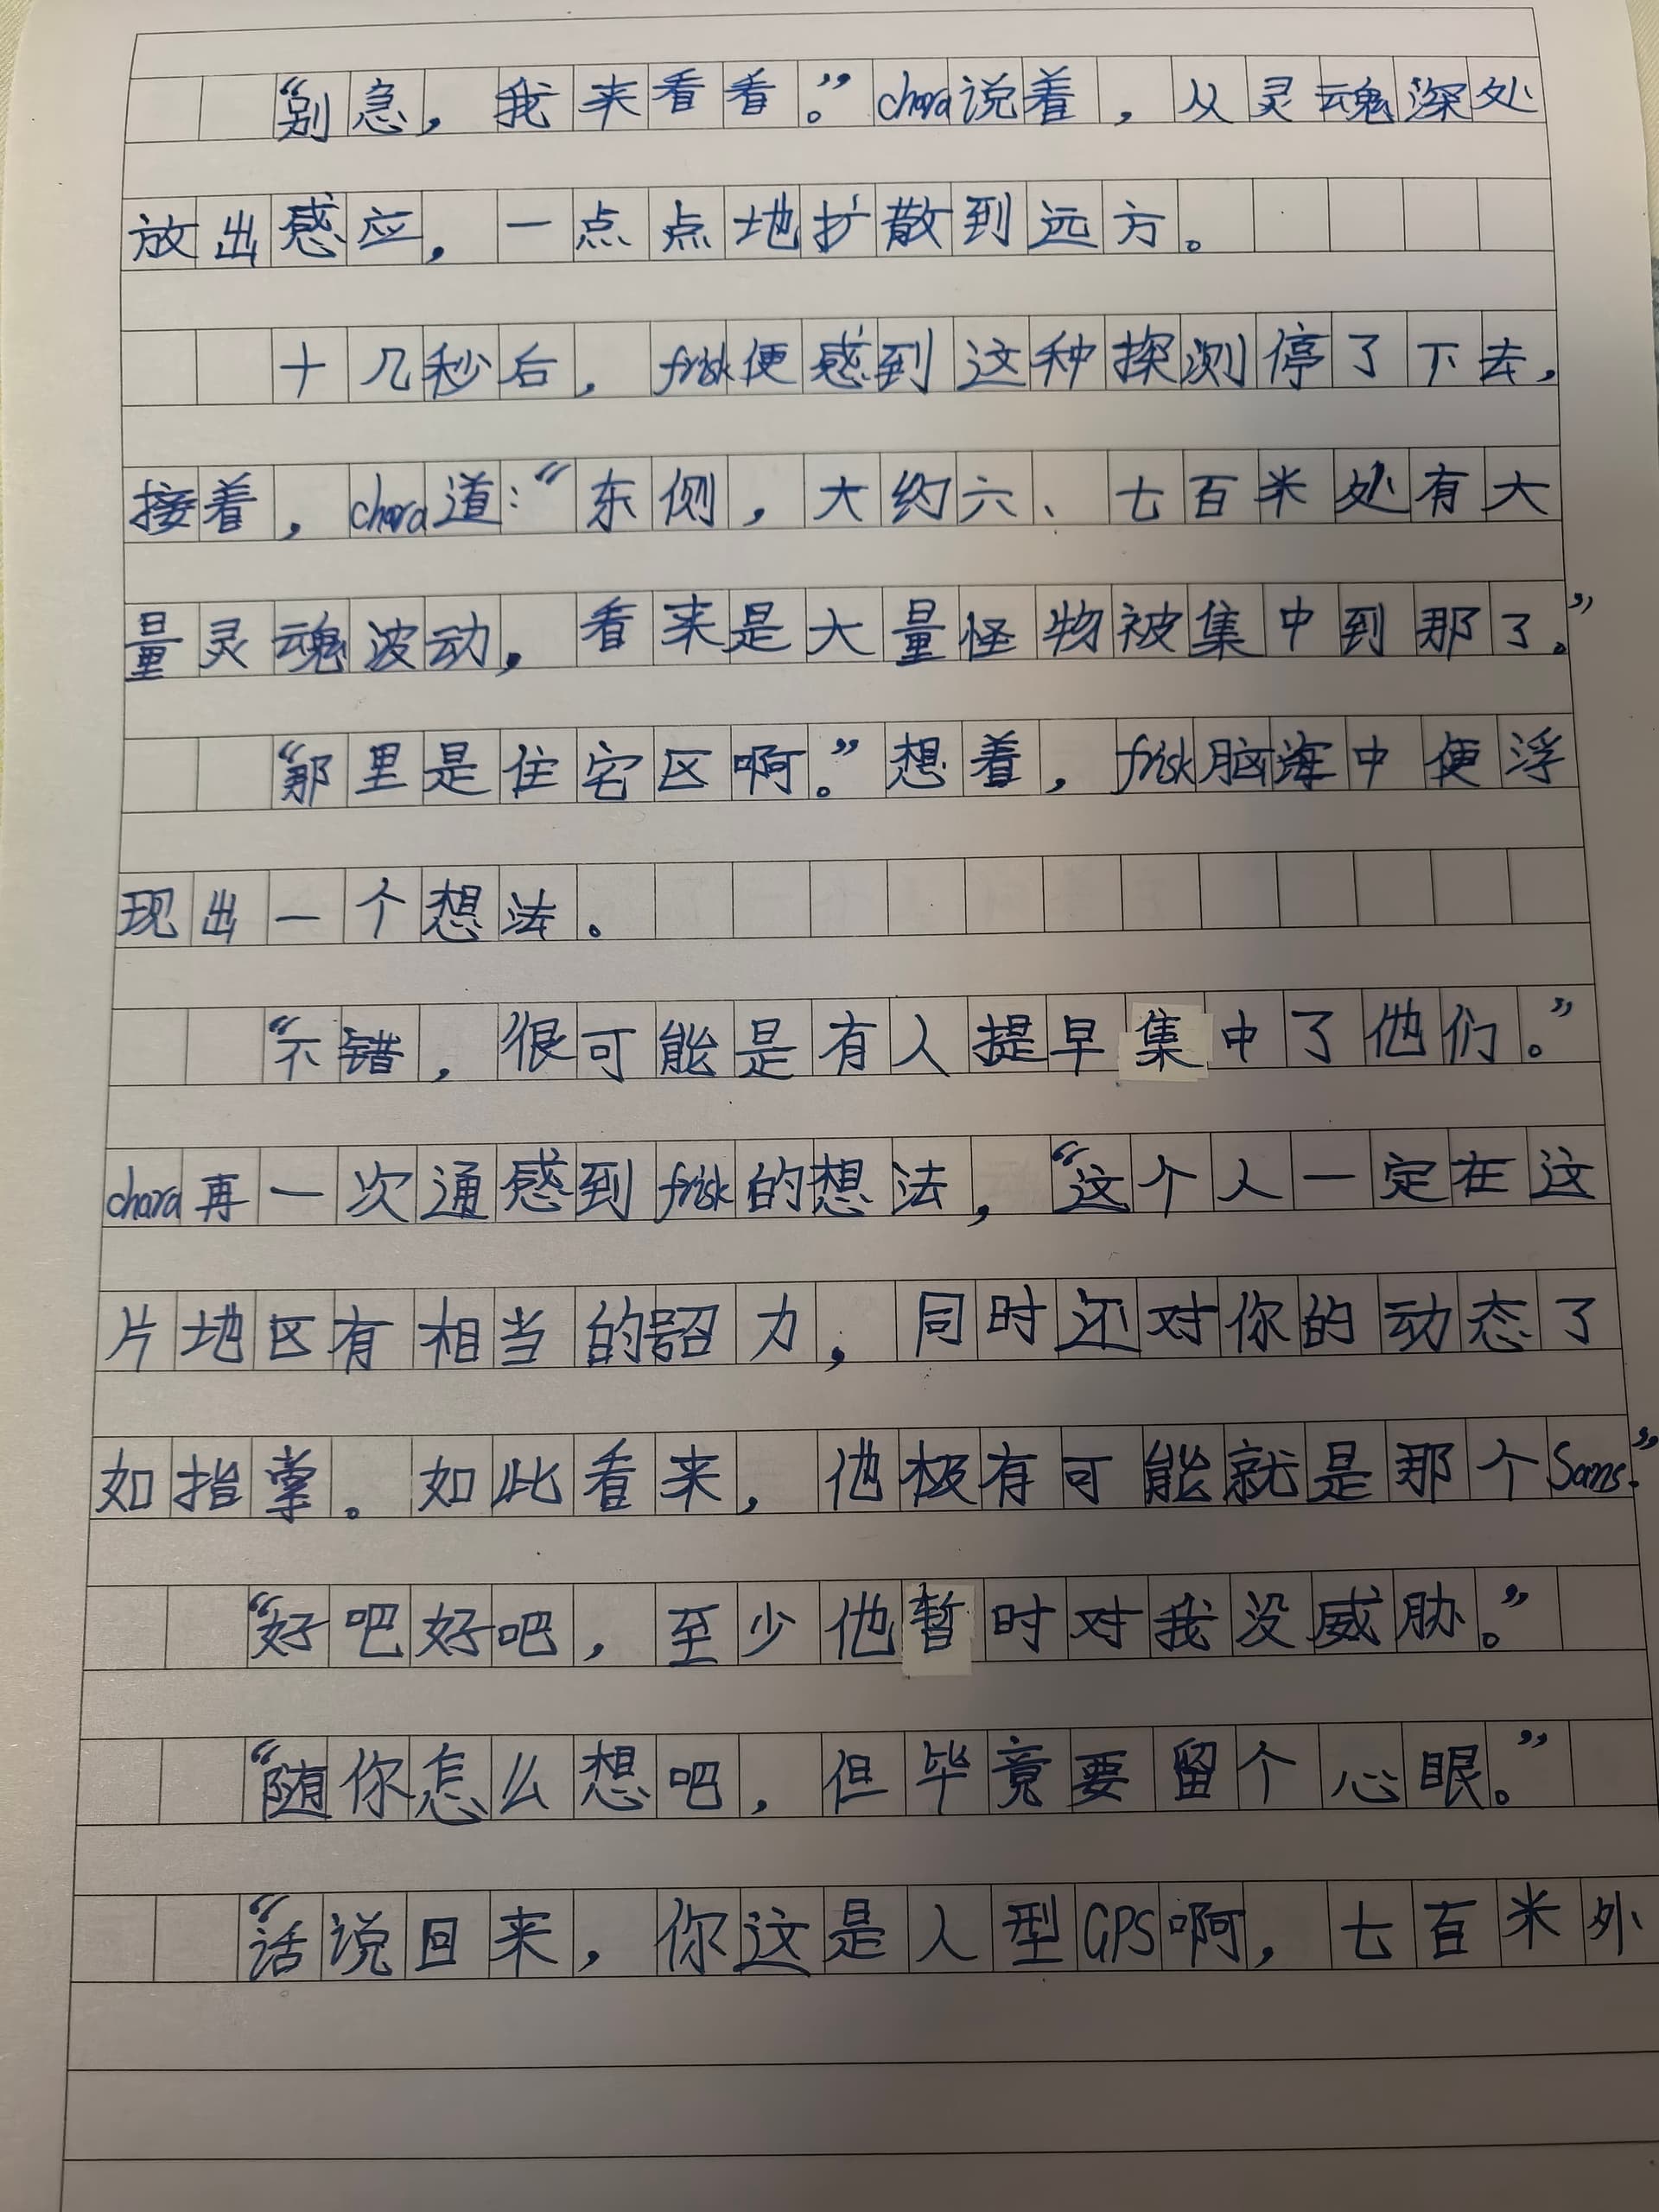 “别急，我来看看。”chara说着，从灵魂深处
放出感应，一点点地扩散到远方。
十几秒后，frisk便感到这种探测停了下去，
接着，chara道：“东侧，大约六、七百米处有大
量灵魂波动，看来是大量怪物被集中到那了。”
“那里是住宅区啊。”想着，frisk脑海中便浮
现出一个想法。
“不错，很可能是有人提早集中了他们。”
chara再一次通感到frisk的想法，“这个人一定在这
片地区有相当的力，同时还对你的动态了
如指掌。如此看来，他极有可能就是那个Sans.”
“好吧好吧，至少他暂时对我没威胁。”
“随你怎么想吧，但毕竟要留个心眼。”
“话说回来，你这是人型GPS啊，七百米外